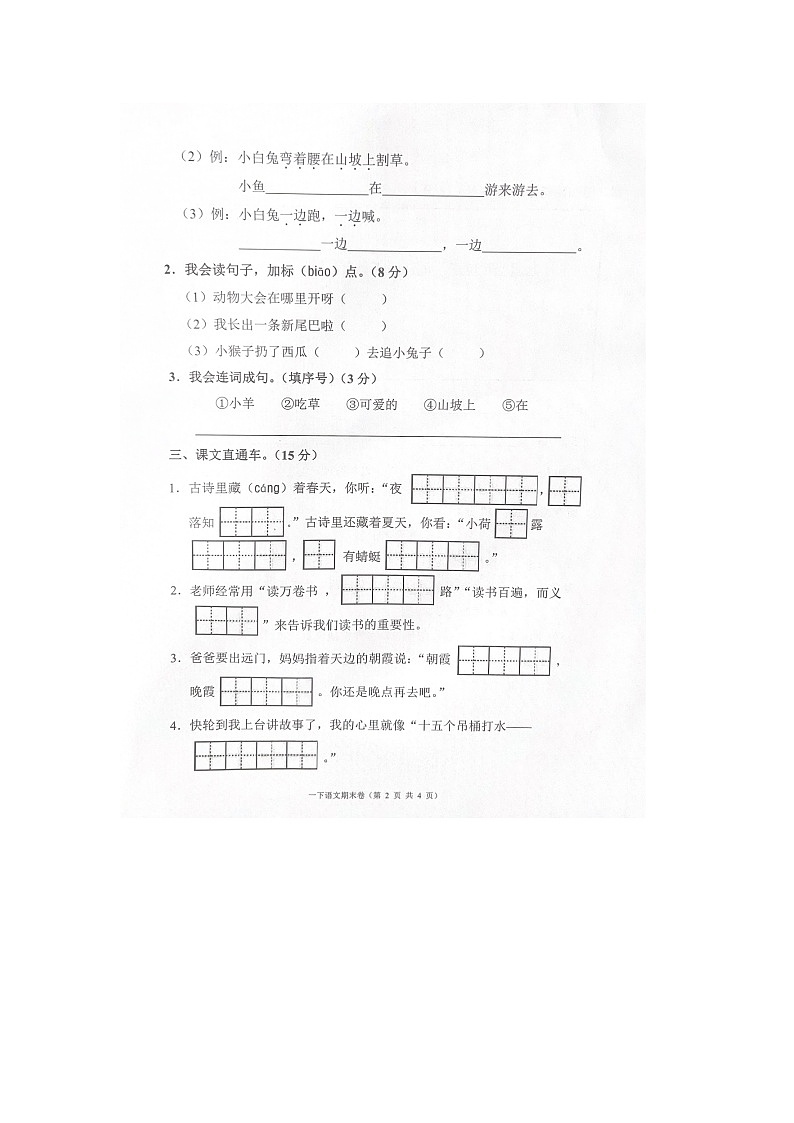 （2）例：小白兔弯着腰在山坡上割草。
小鱼______________在______________游来游去。
（3）例：小白兔一边跑，一边喊。
___________一边_____________，一边_____________。
2．我会读句子，加标（biāo）点。（8 分）
（1）动物大会在哪里开呀（    ）
（2）我长出一条新尾巴啦（    ）
（3）小猴子扔了西瓜（    ）去追小兔子（    ）
3．我会连词成句。（填序号）（3 分）
①小羊  ②吃草  ③可爱的  ④山坡上  ⑤在
三、课文直通车。（15 分）
1．古诗里藏（cáng）着春天，你听：“夜 ，
落知 .”古诗里还藏着夏天，你看：“小荷 露
， 有蜻蜓 。”
2．老师经常用“读万卷书 ， 路”“读书百遍，而义
”来告诉我们读书的重要性。
3．爸爸要出远门，妈妈指着天边的朝霞说：“朝霞 ，
晚霞 。你还是晚点再去吧。”
4．快轮到我上台讲故事了，我的心里就像“十五个吊桶打水——
。”
一下语文期末卷（第 2 页 共 4 页）